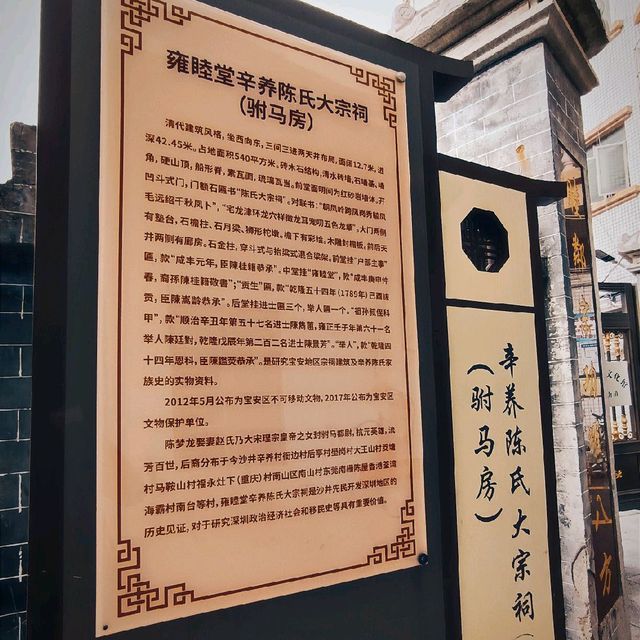 雍睦堂辛养陈氏大宗祠
(驸马房)
清代建筑风格，坐西向东，三间三进两天井布局，面阔12.7米，进
深42.45米，占地面积540平方米，砖木石结构，清水砖墙，石墙基，墙
角，硬山顶，船形脊，素瓦面，琉璃瓦当。前堂面明间为红砂岩墙体，开
凹斗式门，门额石匾书"陈氏大宗祠"。对联书："朝凤岭跨凤阁秀毓凤
毛远绍千秋凤卜"，"宅龙津环龙穴祥徵龙耳宠叨五色龙章"，大门两侧
有塾台，石檐柱、石月梁、狮形柁墩。檐下有彩绘，木雕封檐板，前后天
井两侧有廊房。石金柱，穿斗式与抬梁式混合梁架。前堂挂"户部主事"
匾，款"咸丰元年，臣陳桂籍恭承"。中堂挂"雍睦堂"，款"咸丰庚申仲
春，裔孫陳桂籍敬書"；"贡生"匾，款"乾隆五十四年(1789年)己酉拔
贡，臣陳嵩龄恭承"。后堂挂进士匾三个，举人匾一个。"祖孙叔侄科
甲"，款"顺治辛丑年第五十七名进士陳雋蕙，雍正壬子年第六十一名
举人陳廷對，乾隆戊辰年第二百二名进士陳景芳"。"举人"，款"乾隆四
十四年恩科，臣陳鑑荧恭承"。是研究宝安地区宗祠建筑及辛养陈氏家
族史的实物资料。
2012年5月公布为宝安区不可移动文物，2017年公布为宝安区
文物保护单位。
陈梦龙娶妻赵氏乃大宋理宗皇帝之女封驸马都尉，抗元英雄，流
芳百世，后裔分布于今沙井辛养村衙边村后亭村壆岗村大王山村茭塘
村马鞍山村福永灶下(重庆)村南山区南山村东莞南栅陈屋香港荃湾
海霸村南台等村，雍睦堂辛养陈氏大宗祠是沙井先民开发深圳地区的
历史见证，对于研究深圳政治经济社会和移民史等具有重要价值。
辛养陈氏大宗祠
(驸马房)